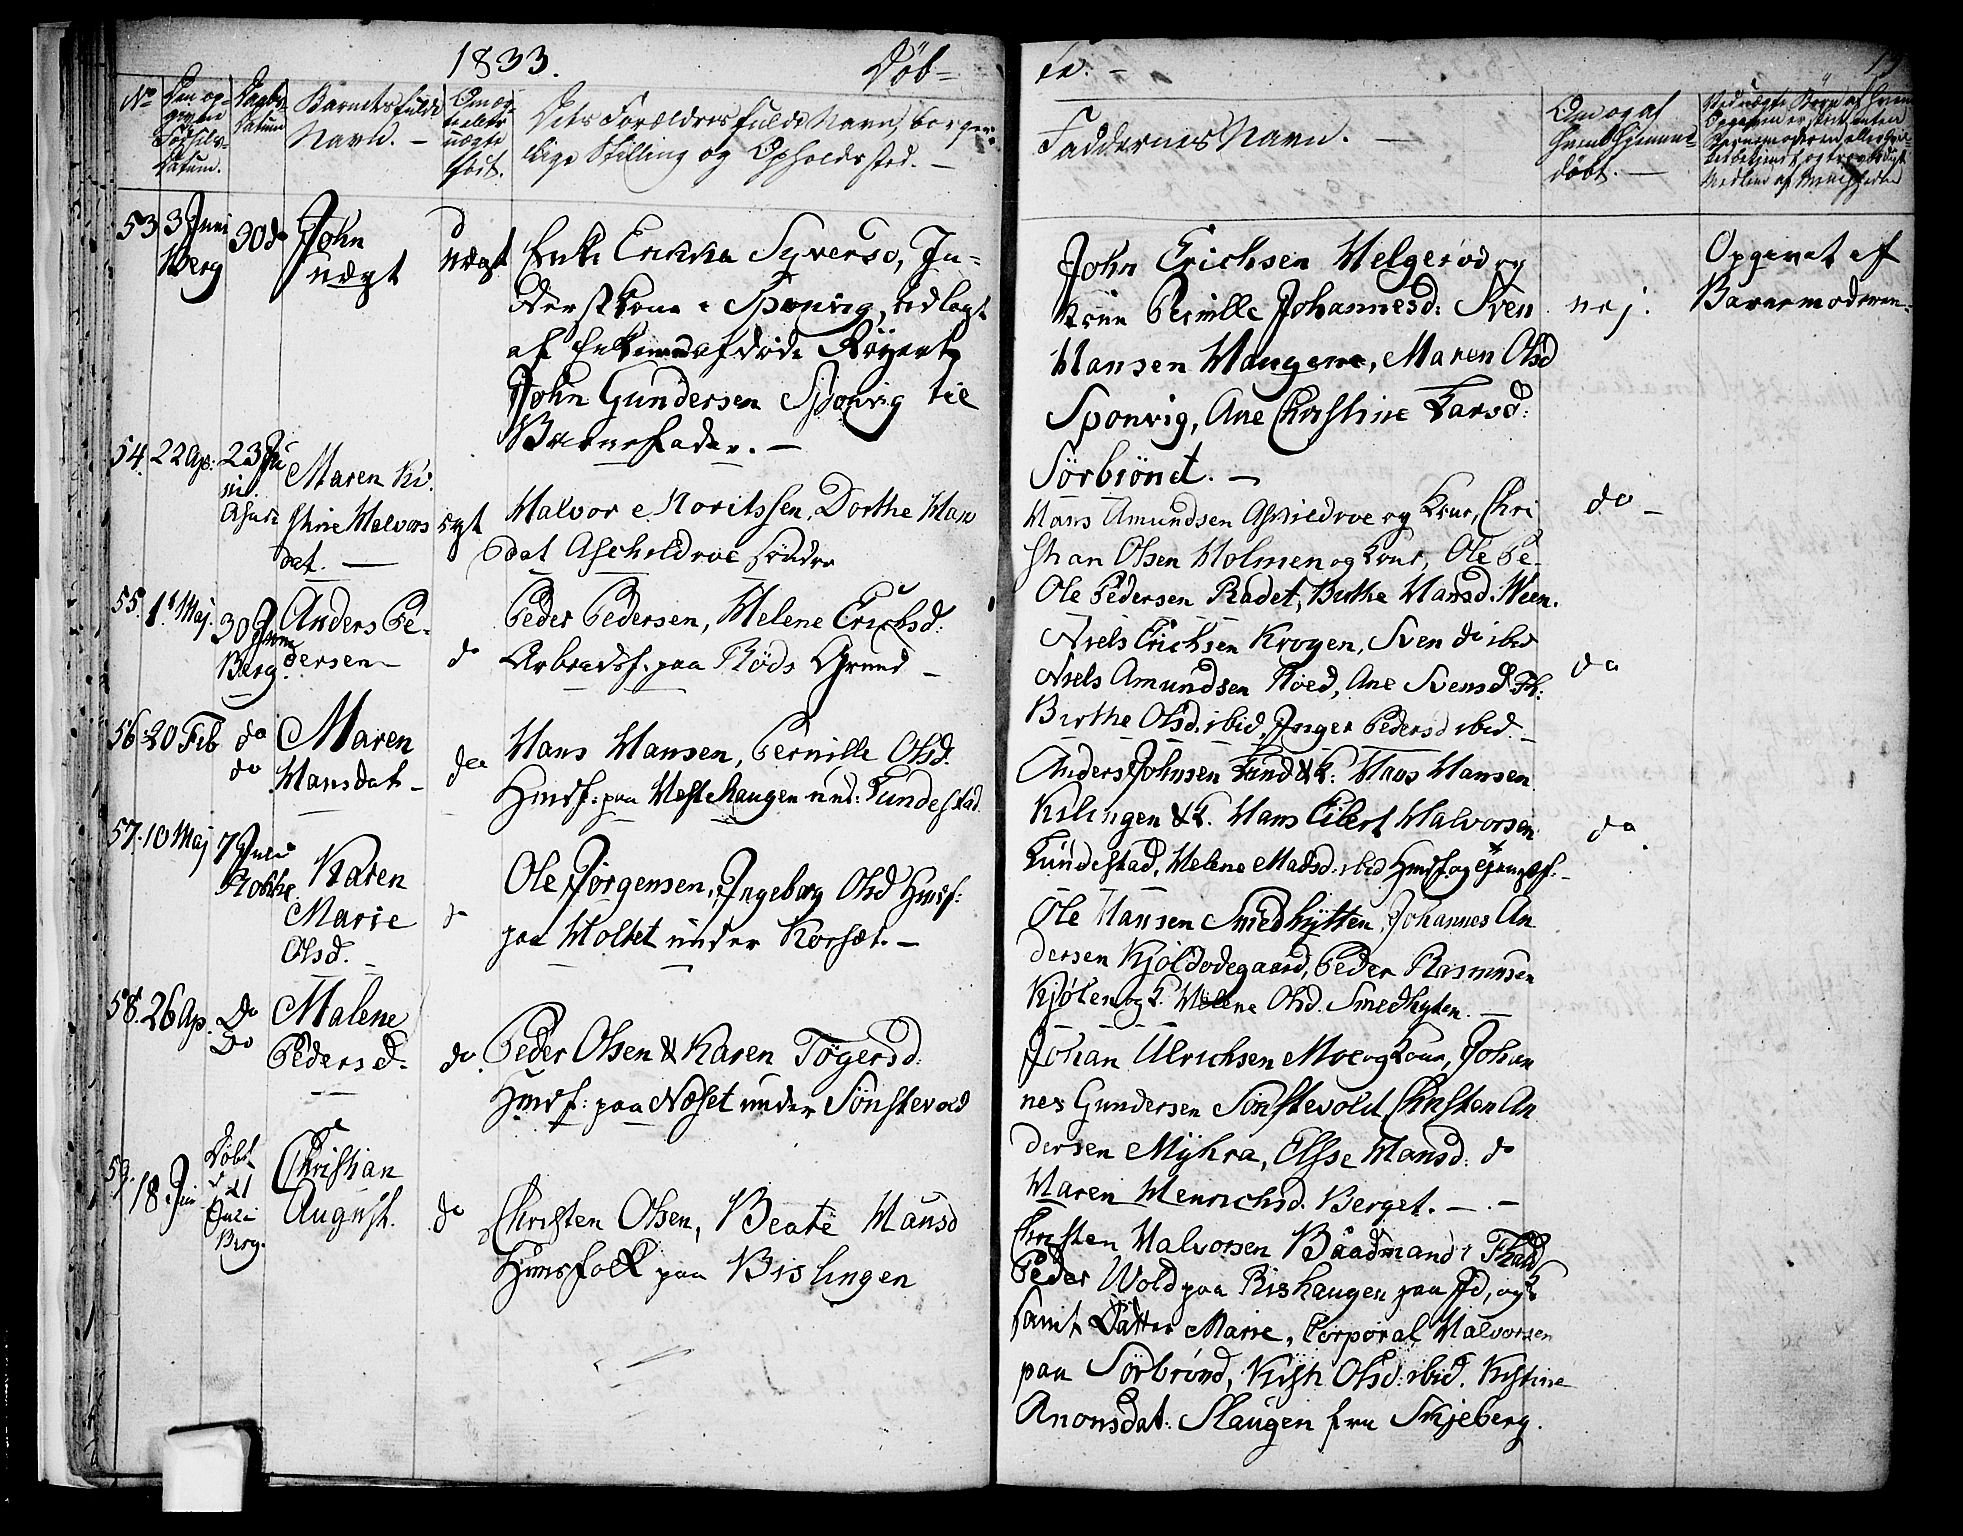 1833.
Döb-
en. -
No
Den op-
given
Fødsels-
Datum.
Daabs-
Datum
Barnets fulde
Navn. -
Om æg-
te eller
uægte
født.
Dets Forældres fulde Navn, borger-
lige Stilling og Opholdssted. -
Faddernes Navn. -
Om og af
hvem hjemme-
døbt. -
53
3 Juni
Berg
30 do
John
uægt
uægt
Enke Erikka Syversd, In-
derstkone i Sponvig, udlagt
af Enkemand afdøde
John Gundersen Sponvig til
Barnefader. -
John Erichsen Helgerød og
Kone Pernille Johannesd: Sven
Hansen Haugene, Maren Olsd
Sponvig, Ane Christine Larsd:
Sörbrönd. -
nej.
Opgivet af
Barnemoderen-
54.
22 Ap:
23 Ju
ni.
Asak
Maren Ki
stine Halvors
dat. -
ægt
Halvor Moritssen, Dorthe Han
dat Aschildroe
Hans Amundsen Askildroe og Kone, Chri
stian Olsen Holmen og Kone, Ole Pe-
Ole Pedersen Rødet, Birthe Hansd.
do -
55.
1st Maj.
30 Juni
Berg.
Anders Pe-
dersen -
do
Peder Pedersen, Helene Erichsd:
Arbeidsf. paa Röds Grund -
Niels Erichsen Krogen, Sven do ibid
Niels Amundsen Röed, Ane Svensd
Birthe Olsd. ibid, Inger Pedersd ibid. -
do
56
20 Feb
do
do
Maren
Hansdat -
do
Hans Hansen, Pernille Olsd.
Hmsf: paa Vestehaugen und: Tundestad.
Anders Johnsen Lund & K: Hans Hansen
Kislingen & K. Hans Eilert Halvorsen
Tundestad, Helene Madsd: ibid Hmsf. og
do.
57.
10 Maj
7 Julii
Rokke.
Karen
Marie
Olsd. -
do
Ole Jørgensen, Ingeborg Olsd Hmsf:
paa Holtet under Korsæt. -
Ole Hansen Smedhytten, Johannes An
dersen Kjölödegaard, Peder Rasmusen
Kjölen og K. Helene Olsd. Smedhyten. -
58.
26 Ap.
Do
Do
Malene
Pedersd.
do.
Peder Olsen & Karen Tøgersd:
Hmsf: paa Næset under Sönstevold
Johan Ulrichsen Moe og Kone, Johan
nes Gundersen Sönstevold Christen An
dersen Myhra, Elsse Hansd: do
Maren Henrichsd. Berget. - -
59.
18 Jun
Döbt
d 21
Julii
Berg.
Christian
August.
do
Christen Olsen, Beate Hansd
Huusfolk paa Bislingen
Christen Halvorsen Baadmand i Fhald
Peder Wold paa Rishaugen paa Id, og K
samt Datter Marie, Corporal Halvorsen
paa Sörbrönd, Kisti Olsd: ibid. Kistine
Anonsdat: Slaugen fra Skjeberg.